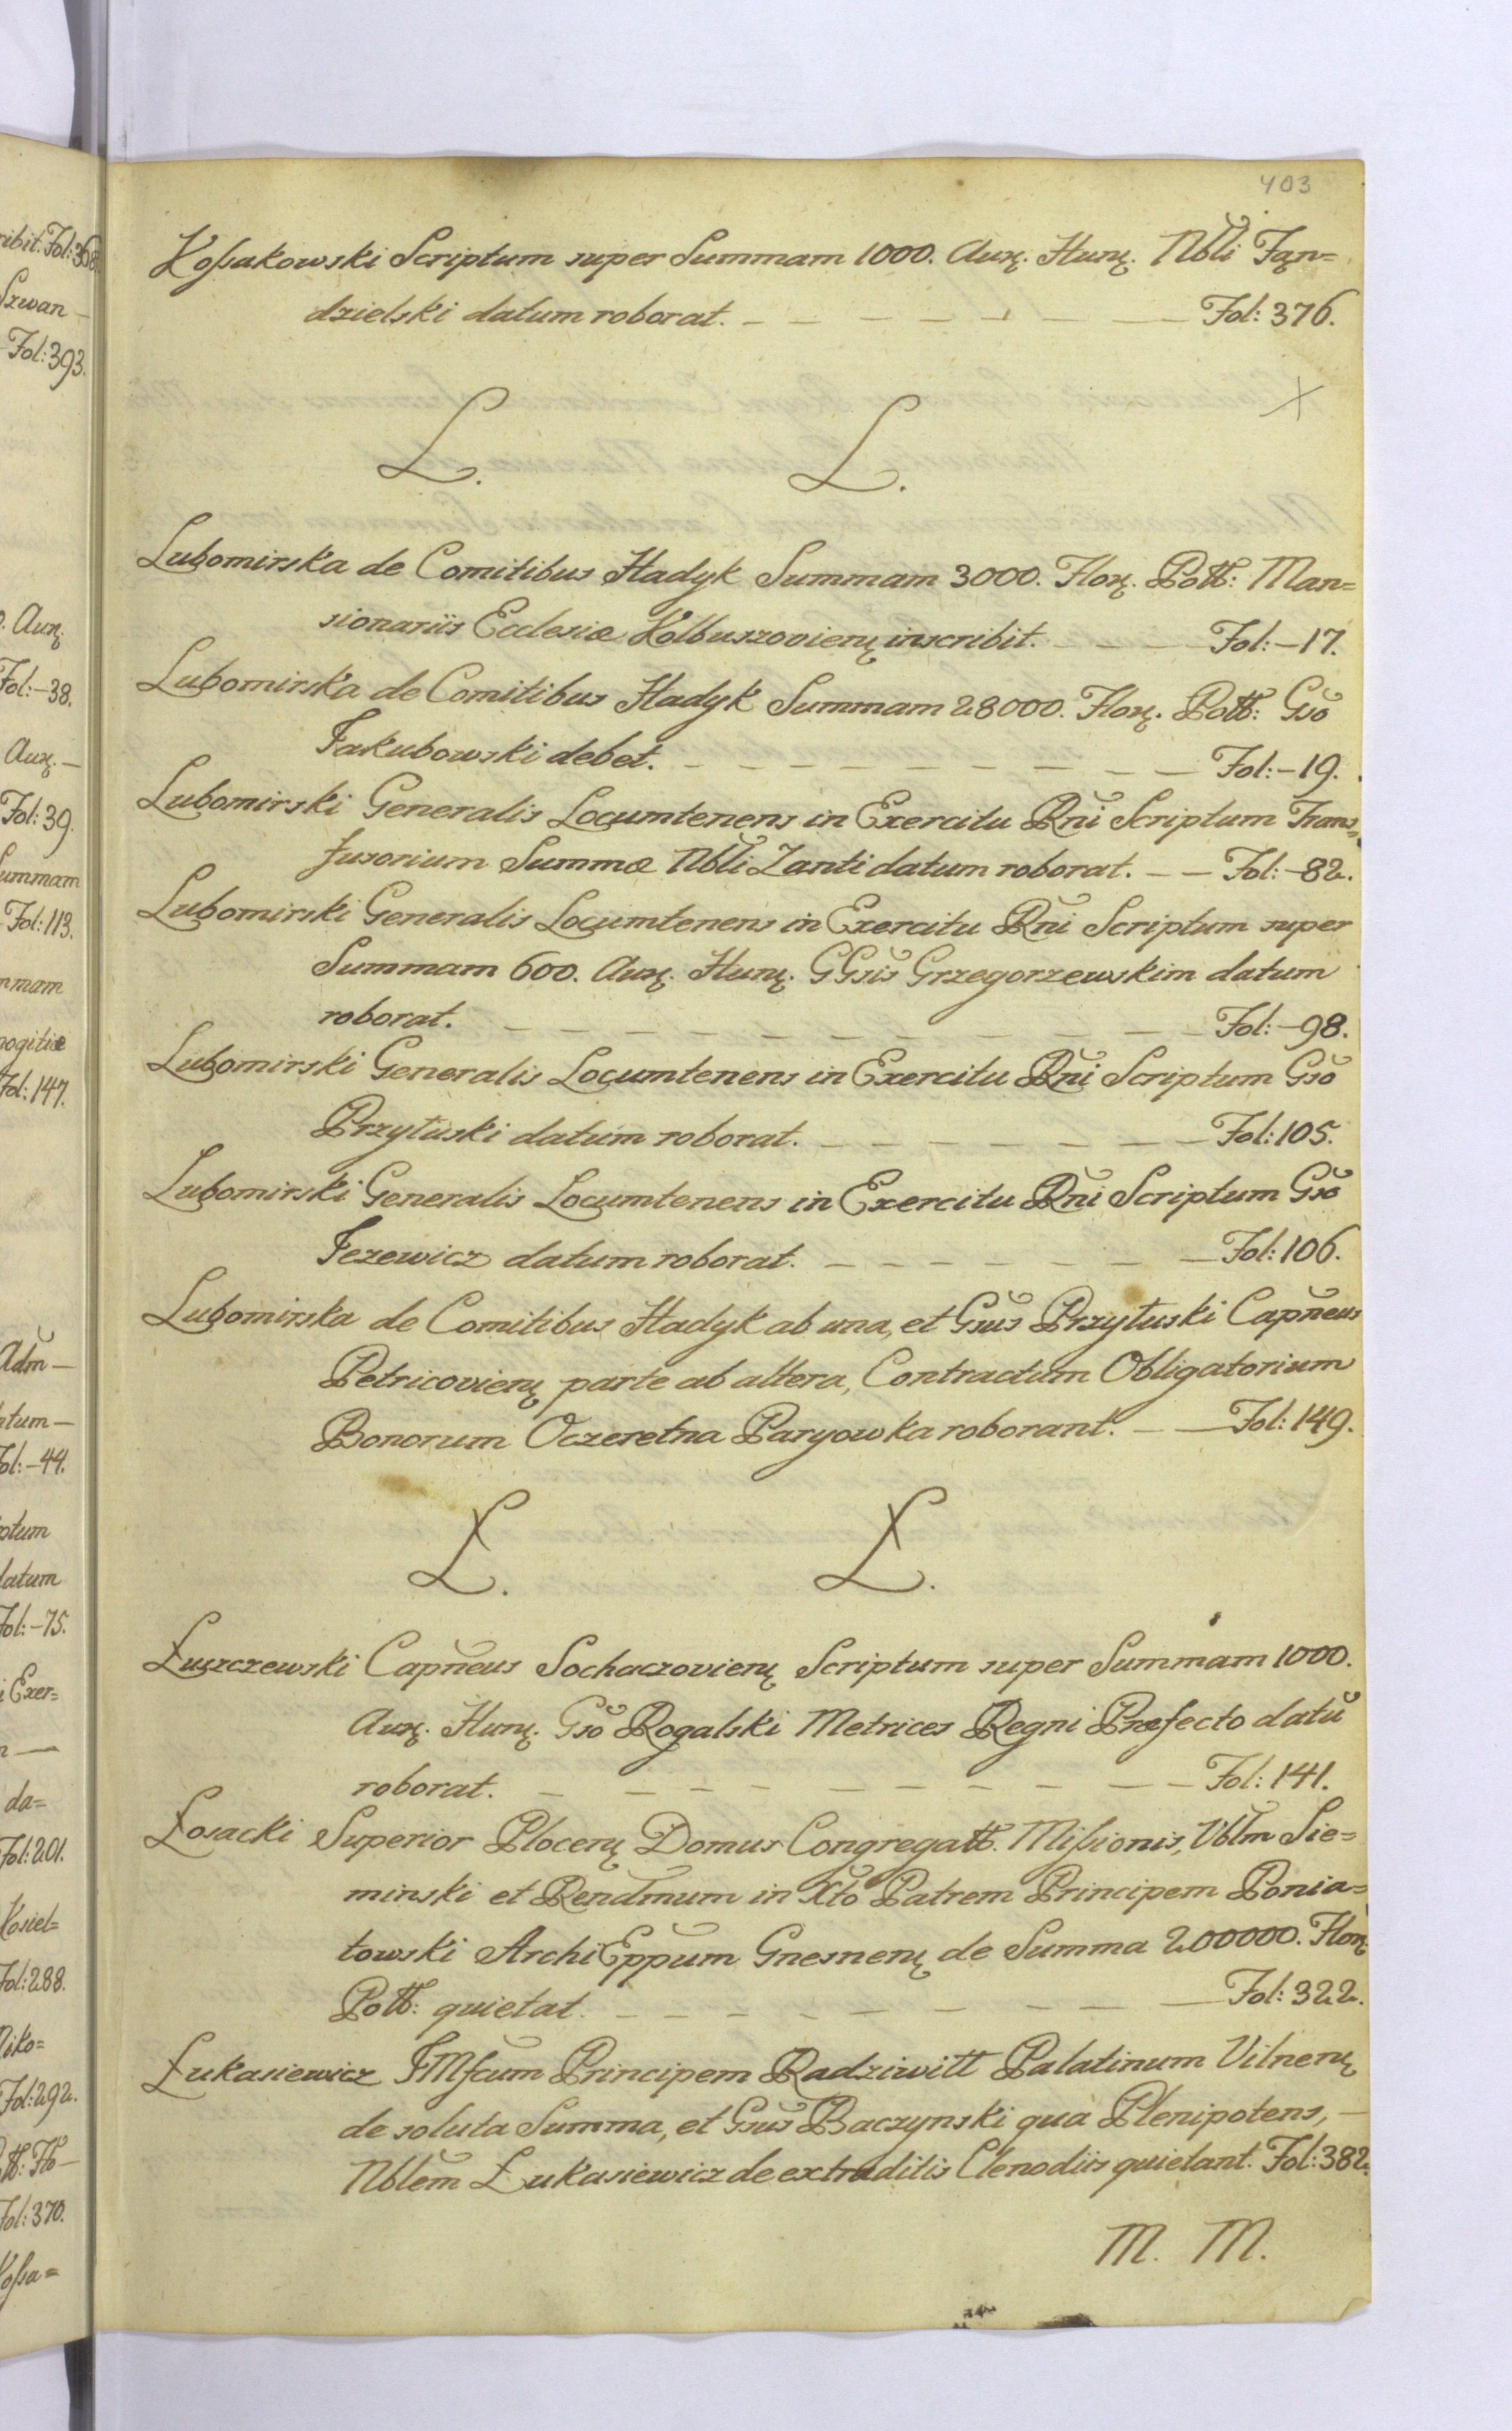 403
Kossakowski Scriptum super Summam 1000. Aur. Hun. Nbli Jąn=
dzielski datum roborat. — — — — — — Fol: 376.
L. L.
Lubomirska de Comitibus Hadyk Summam 3000. Flor. Poll: Man=
sionariis Ecclesiæ Kolbuszovien inscribit. — — — Fol: -17.
Lubomirska de Comitibus Hadyk Summam 28000. Flor. Poll: Gso
Jakubowski debet. — — — — — — — — Fol: -19.
Lubomirski Generalis Locumtenens in Exercitu Rni Scriptum Trans=
fusorium Summæ Nbli Zanti datum roborat. — — Fol: -82.
Lubomirski Generalis Locumtenens in Exercitu Rni Scriptum super
Summam 600. Aur. Hun. GGsis Grzegorzewskim datum
roborat. — — — — — — — — — — Fol: -98.
Lubomirski Generalis Locumtenens in Exercitu Rni Scriptum Gso
Przyłuski datum roborat. — — — — — — — Fol: 105.
Lubomirski Generalis Locumtenens in Exercitu Rni Scriptum Gso
Jezewicz datum roborat. — — — — — — — Fol: 106.
Lubomirska de Comitibus Hadyk ab una, et Gsus Przyłuski Capneus
Petricovien parte ab altera, Contractum Obligatorium
Bonorum Oczeretna Paryowka roborant. — — Fol: 149.
Ł. Ł.
Łuszczewski Capneus Sochaczovien Scriptum super Summam 1000.
Aur. Hun. Gso Rogalski Metrices Regni Præfecto datū
roborat. — — — — — — — — — — Fol: 141.
Łosacki Superior Plocen Domus Congregatt. Missionis, Vblm Sie=
minski et Rendmum in Xto Patrem Principem Ponia=
towski ArchiEppum Gnesnen de Summa 200000. Flor.
Poll: quietat. — — — — — — — — — Fol: 322.
Łukasiewicz JMscum Principem Radziwiłł Palatinum Vilnen
de soluta Summa, et Gsus Baczynski qua Plenipotens, —
Nblem Łukasiewicz de extraditis Clenodiis quietant. Fol: 382.
M. M.
ribit. Fol: 368.
Szwan —
Fol: 393.
Aur.
Fol: -38.
Aur. —
Fol: 39.
Summam
Fol: 113.
mmam
mogitiæ
Fol: 147.
Adm —
tum —
Fol: -44.
ptum
datum
Fol: -75.
i Exer=
da=
Fol: 201.
Kosiel=
Fol: 288.
Niko=
Fol: 292.
Fol: 370.
Kossa=